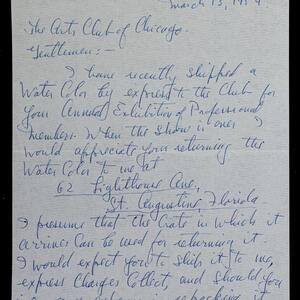 March 15, 19
The Arts Club of Chicago.
Gentlemen:-
I have recently shipped a
Water Color by express to the Club for
your Annual Exhibition of Professional
members. When the show is over I
would appreciate your returning the
Water Color to me at
62 Lighthouse Ave,
St. Augustine, Florida
I presume that the Crate in which it
arrives Can be used for returning it.
I would expect you to ship it to me,
express Charges Collect, and should you